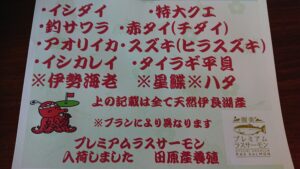 ・イシダイ ・特大クエ
・釣サワラ ・赤タイ(チダイ)
・アオリイカ・スズキ(ヒラスズキ)
・イシカレイ ・タイラギ平貝
※伊勢海老 ※星鰈※ハタ
上の記載は全て天然伊良湖産
※プランにより異なります
プレミアムラスサーモン
入荷しました 田原産養殖
プレミアム
ラスサーモン
RAS SALMON